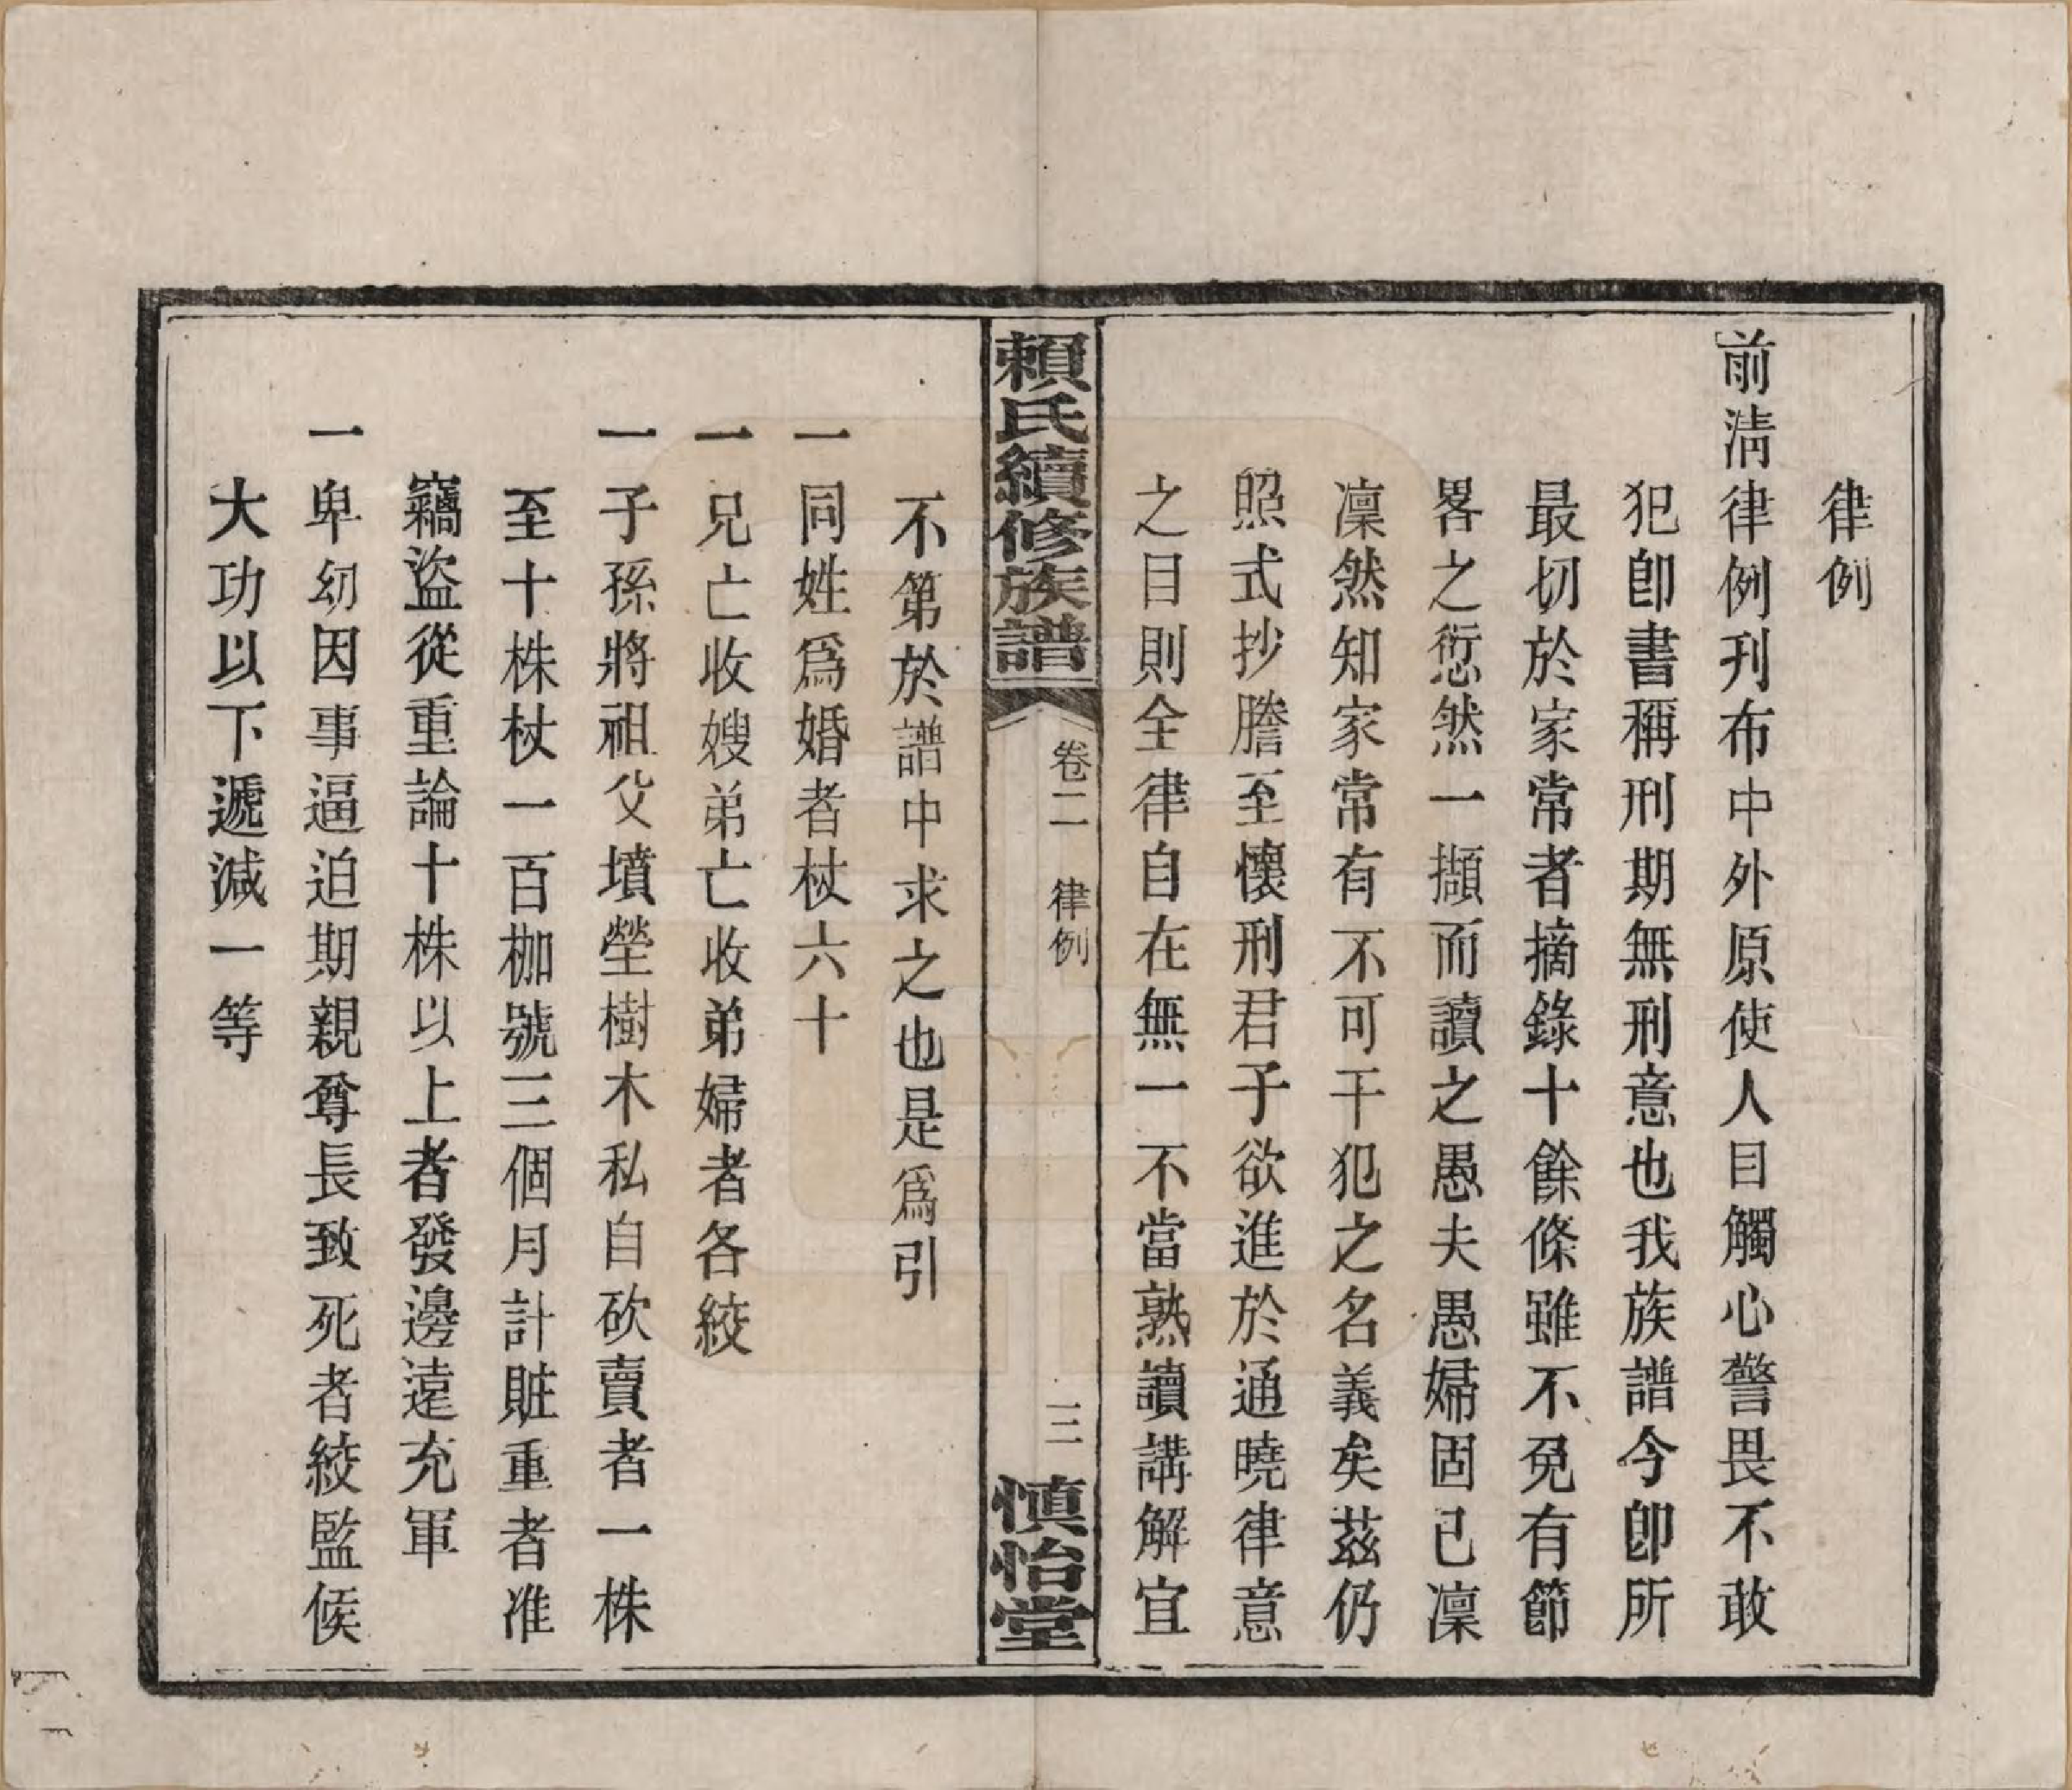 律例
前淸律例刋布中外原使人目觸心警畏不敢
犯卽書稱刑期無刑意也我族譜今卽所
最切於家常者摘錄十餘條雖不免有節
畧之愆然一擷而讀之愚夫愚婦固已凜
凜然知家常有不可干犯之名義矣茲仍
照式抄謄至懷刑君子欲進於通曉律意
之目則全律自在無一不當熟讀講解宜
賴氏續修族譜
卷二 律例
三
慎怡堂
不第於譜中求之也是爲引
一同姓爲婚者杖六十
一兄亡收嫂弟亡收弟婦者各絞
一子孫將祖父墳塋樹木私自砍賣者一株
至十株杖一百枷號三個月計賍重者准
竊盜從重論十株以上者發邊遠充軍
一卑幼因事逼迫期親尊長致死者絞監候
大功以下遞減一等